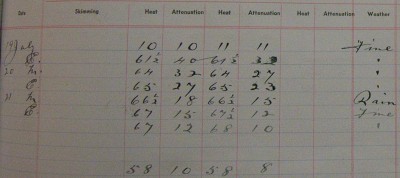 Skimming Heat Attenuation Heat Attenuation Heat Attenuation Weather
19 July 10 10 11 11 Fine
E 61½ 40 61½ 33 "
20 M 64 32 64 27 "
E 65 27 65 23 "
21 M 66½ 18 66½ 15 Rain
E 67 15 67½ 12 Fine
67 12 68 10 "
58 10 58 8